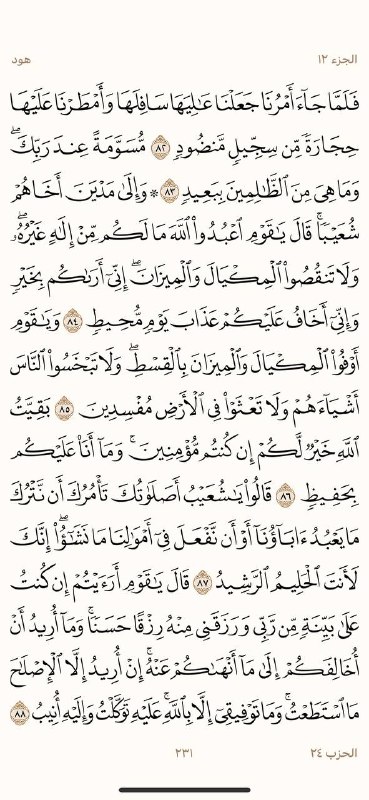 الجزء ١٢ هود
فَلَمَّا جَآءَ أَمْرُنَا جَعَلْنَا عَٰلِيَهَا سَافِلَهَا وَأَمْطَرْنَا عَلَيْهَا
حِجَارَةً مِّن سِجِّيلٍ مَّنضُودٍ ٨٢ مُّسَوَّمَةً عِندَ رَبِّكَۖ
وَمَا هِىَ مِنَ ٱلظَّٰلِمِينَ بِبَعِيدٍ ٨٣ ۞ وَإِلَىٰ مَدْيَنَ أَخَاهُمْ
شُعَيْبًاۚ قَالَ يَٰقَوْمِ ٱعْبُدُوا۟ ٱللَّهَ مَا لَكُم مِّنْ إِلَٰهٍ غَيْرُهُۥۖ
وَلَا تَنقُصُوا۟ ٱلْمِكْيَالَ وَٱلْمِيزَانَۖ إِنِّىٓ أَرَىٰكُم بِخَيْرٍ
وَإِنِّىٓ أَخَافُ عَلَيْكُمْ عَذَابَ يَوْمٍ مُّحِيطٍ ٨٤ وَيَٰقَوْمِ
أَوْفُوا۟ ٱلْمِكْيَالَ وَٱلْمِيزَانَ بِٱلْقِسْطِۖ وَلَا تَبْخَسُوا۟ ٱلنَّاسَ
أَشْيَآءَهُمْ وَلَا تَعْثَوْا۟ فِى ٱلْأَرْضِ مُفْسِدِينَ ٨٥ بَقِيَّتُ
ٱللَّهِ خَيْرٌ لَّكُمْ إِن كُنتُم مُّؤْمِنِينَۚ وَمَآ أَنَا۠ عَلَيْكُم
بِحَفِيظٍ ٨٦ قَالُوا۟ يَٰشُعَيْبُ أَصَلَوٰتُكَ تَأْمُرُكَ أَن نَّتْرُكَ
مَا يَعْبُدُ ءَابَآؤُنَآ أَوْ أَن نَّفْعَلَ فِىٓ أَمْوَٰلِنَا مَا نَشَٰٓؤُا۟ۖ إِنَّكَ
لَأَنتَ ٱلْحَلِيمُ ٱلرَّشِيدُ ٨٧ قَالَ يَٰقَوْمِ أَرَءَيْتُمْ إِن كُنتُ
عَلَىٰ بَيِّنَةٍ مِّن رَّبِّى وَرَزَقَنِى مِنْهُ رِزْقًا حَسَنًاۚ وَمَآ أُرِيدُ أَنْ
أُخَالِفَكُمْ إِلَىٰ مَآ أَنْهَىٰكُمْ عَنْهُۚ إِنْ أُرِيدُ إِلَّا ٱلْإِصْلَٰحَ
مَا ٱسْتَطَعْتُۚ وَمَا تَوْفِيقِىٓ إِلَّا بِٱللَّهِۚ عَلَيْهِ تَوَكَّلْتُ وَإِلَيْهِ أُنِيبُ ٨٨
الحزب ٢٤ ٢٣١